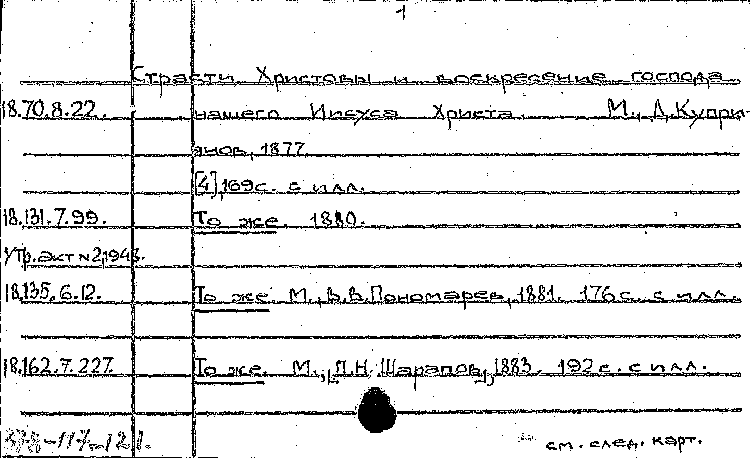 1
Страсти Христовы и воскресение господа
18.70.8.22. нашего Иисуса Христа. М., Д.Купри-
янов, 1877
[4],169с. с илл.
18.131.7.99. То же. 1880.
Утр.акт №2,1948.
18.135.6.12. То же. М., В.В.Пономарев, 1881. 176с. с илл.
18.162.7.227. То же. М., [П.Н.Шарапов], 1883. 192с. с илл.
см. след. карт.